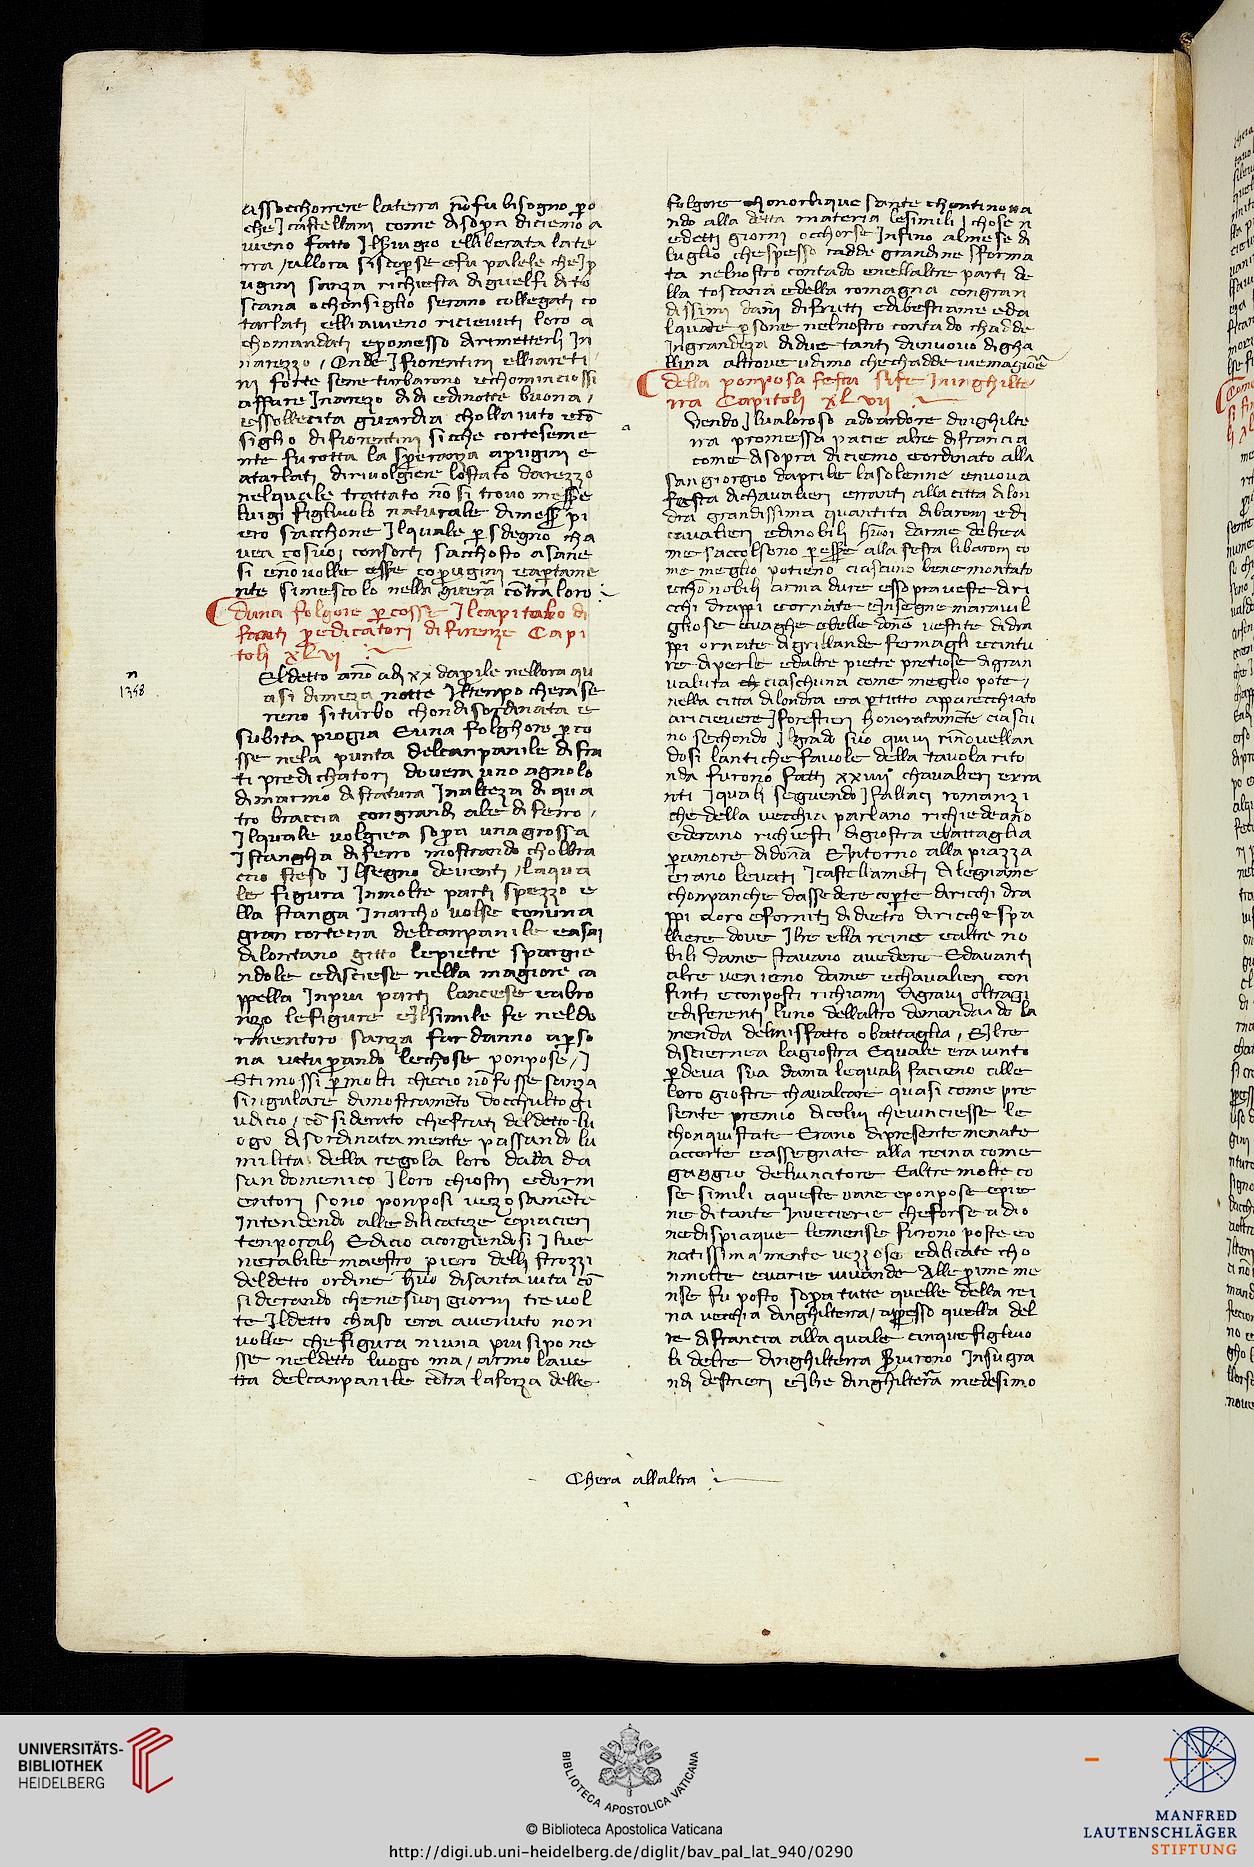 assocchorrere laterra nōfu bisogno ꝑo
che J castellani come disopa diciemo a
vieno fatto Jlsꝑugio elliberata late
rra / allora siscoꝑse efu palese cheJꝑ
ugini sanza richiesta diguelfi dito
scana ochonsiglio serano collegati co
tarlati elliavieno ricievuti loro a
chomandati epomesso dirimetterli In
narezzo / Onde J fiorentini elliareti
ni forte sene turbarono rechominciossi
affare Inarezo di di edinotte buona /
essollecita guardia chollaiuto ecō
siglio difiorentini sicche corteseme
nte fu rotta la speranza aꝑugini e
atarlati dirivolgiere lostato darezzo
nelquale trattato nō si trovo messe
luigi figliuolo naturale dimess pi
ero sacchone Jlquale ꝑ sdegno cha
vea cosuoi consorti sacchosto asane
si enōvolle esse coꝑugini eaꝑtame
nte simescolo nella guerra cōtra loro
duna folgore ꝑcosse Jlcapitolo di
frati ꝑedicatori di firenze Capi
toli xlvi
El detto año adi xx daprile nellora qu
asi dimeza notte Jltempo cherase
reno siturbo chondisordinata e
subita piogia Euna folghore ꝑco
sse nela punta delcanpanile difra
ti predichatori dovera uno agnolo
dimarmo distatura Inalteza di qua
tro braccia congrandi alie diferro /
Jlquale volgiea sopa una grossa
Jstangha diferro mostrando cholbra
ccio steso Jlsegno deventi / laqua
le figura Inmolte parti spezzo e
lla stanga Inarcho volse conuna
gran corteccia delcanpanile easai
dilontano gitto lepietre spargie
ndole edisciese nella magiore ca
ppella Inpiu parti lanciese eabro
nzo lefigure eJlsimile fe neldo
rmentoro sanza fardanno aꝑso
na vituꝑando lechose ponpose / J
Stimossi ꝑmolti checio nōfosse sanza
singulare dimostramēto docchulto gi
udicio / cōsiderato chefrati deldetto lu
ogo disordinatamente passando lu
milita della regola loro data da
san domenico J loro chiostri edorm
entori sono ponposi vezosamēte
Intendendo alle dilicateze epiacieri
tenporali Edicio acorgiendosi Jlve
nerabile maestro piero delli strozzi
deldetto ordine huō disanta vita cō
siderando chenesuoi giorni trevol
te Jldetto chaso era avenuto non
volle chefigura niuna piu sipone
sse neldetto luogo ma / armo lave
tta delcanpanile cōtra laforza delle
n
1358
folgore chonorlique sante chontinova
ndo alla detta materia lesimili chose n
edetti giorni occhorse Jnfino almese di
luglio chespesso cadde grandine sforma
ta nelnostro contado enellaltre parti de
lla toscana edella romagna congran
dissimi dani difrutti edibestiame eda
lquāte ꝑsone nelnostro contado chadde
Ingrandeza didue tanti diuovo digha
llina altrove udimo chechadde viemagiore
della ponposa festa sife Ininghilte
rra Capitoli xlvii
Vendo Jlvaloroso adoardore dinghilte
rra promessa pacie alre difrancia
come disopra diciemo eordinato alla
sangiorgio daprile lasolenne enuova
festa dichavalieri erranti alla citta dilon
dra grandissima quantita dibaroni edi
cavalieri edinobili huōi darme delrea
me saccolseno ꝑesse alla festa libaroni co
me meglio potieno ciascuno bene montato
ecchōnobili armadure essopraveste diri
cchi drappi eornate eInsegne maravil
gliose evaghe ebelle dōne vestite didra
ppi ornate digrillande fermagli ecintu
re diperle edaltre pietre pretiose digran
valuta ciaschuna come meglio pote /
nella citta dilondra era ꝑtutto apparecchiato
aricievere J forestieri honoratamēte ciascu
no sechondo Jlgrado suo quivi rinovellan
dosi lantiche favole della tavola rito
nda furono fatti xxiiii chavalieri erra
nti Jquali seguendo J fallaci romanzi
che della vecchia parlano richiedeano
ederano richiesti digiostra ebattaglia
ꝑamore di dōna EJntorno alla piazza
erano levati Jcastellamēti dilegniame
chonpanche dassedere coꝑte diricchi dra
ppi aoro eforniti didietro diricche spa
lliere dove Jlre ella reina ealtre no
bili dame stavano avedere Edavanti
alre venieno dame echavalieri con
finti econposti richiami digravi oltragi
ediferenti luno dellaltro domandando la
menda delmisfatto obattaglia / EJlre
disciernea lagiostra Equale era vinto
ꝑdeva sua dama lequali facieno alle
loro giostre chavalcare quasi come pre
sente premio dicolui chevinciesse le
chonquistate Erano dipresente menate
accorte eassegnate alla reina come
gaggio delvincitore Ealtre molte co
se simili aqueste vane eponpose epie
ne ditante Invecierie cheforse a dio
nedispiaque lemense furono poste eo
natissimamente vezzose edilicate cho
nmolte evarie vivande Alle prime me
nse fu posto sopa tutte quelle della rei
na vecchia dinghilterra / appresso quella del
re difrancia alla quale cinque figliuo
li delre dinghilterra ꝑuirono Insugra
ndi destrieri eJlre dinghilterra medesimo
Chera allaltra
UNIVERSITÄTS-
BIBLIOTHEK
HEIDELBERG
BIBLIOTECA APOSTOLICA VATICANA
© Biblioteca Apostolica Vaticana
http://digi.ub.uni-heidelberg.de/diglit/bav_pal_lat_940/0290
MANFRED
LAUTENSCHLÄGER
STIFTUNG